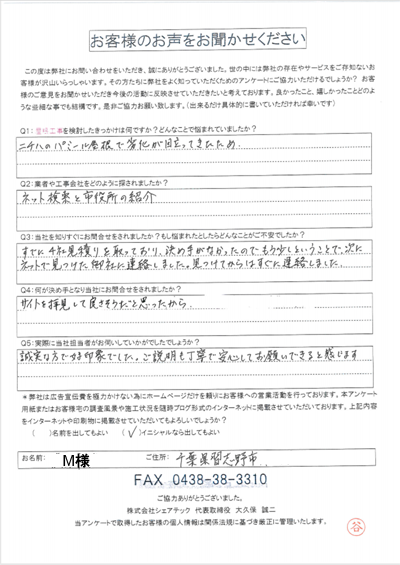 お客様のお声をお聞かせください
この度は弊社にお問い合わせをいただき、誠にありがとうございました。世の中には弊社の存在やサービスをご存知ないお
客様が沢山いらっしゃいます。その方たちに弊社をよく知っていただくためのアンケートにご協力いただけるでしょうか？ お客
様のご意見をお聞かせいただき今後の活動に反映させていただきたいと考えております。良かったこと、嬉しかったことどのよ
うな些細な事でも結構です。是非ご協力お願い致します。（出来るだけ具体的に書いていただければ幸いです）
Q1：屋根工事を検討したきっかけは何ですか？どんなことで悩まれていましたか？
ニチハのパミール屋根で劣化が目立ってきたため.
Q2：業者や工事会社をどのように探されましたか？
ネット検索と市役所の紹介
Q3：当社を知りすぐにお問合せをされましたか？もし悩まれたとしたらどんなことがご不安でしたか？
すでに4社見積りを取っており、決め手がなかったのでもう少しということで、次に
ネットで見つけた御社に連絡しました。見つけてからはすぐに連絡しました.
Q4：何が決め手となり当社にお問合せをされましたか？
サイトを拝見して良さそうだと思ったから.
Q5：実際に当社担当者がお伺いしていかがでしたでしょうか？
誠実な方で好印象でした。ご説明も丁寧で安心してお願いできると感じます
＊弊社は広告宣伝費を極力かけない為にホームページだけを頼りにお客様への営業活動を行っております。本アンケート
用紙またはお客様宅の調査風景や施工状況を随時ブログ形式のインターネットに掲載させていただいております。上記内容
をインターネットや印刷物に掲載させていただいてもよろしいでしょうか？
（ ）名前を出してもよい （✓）イニシャルなら出してもよい
お名前： M様 ご住所： 千葉県習志野市
FAX 0438-38-3310
ご協力ありがとうございました。
株式会社シェアテック 代表取締役 大久保 誠二
当アンケートで取得したお客様の個人情報は関係法規に基づき厳正に管理いたします。
谷